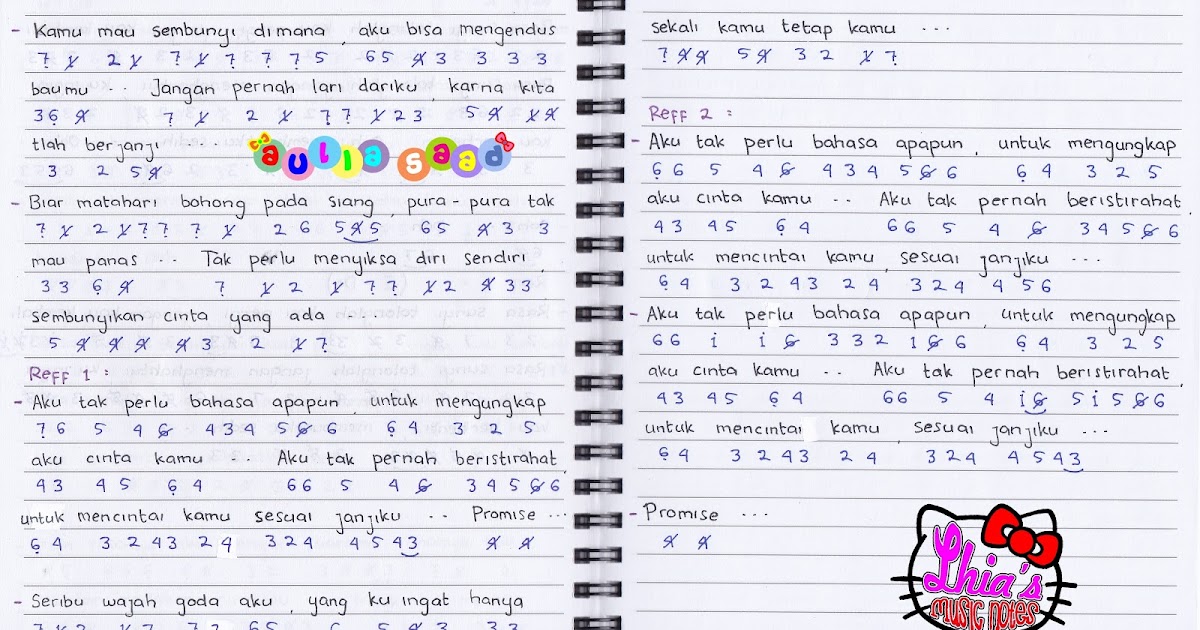 - Kamu mau sembunyi dimana, aku bisa mengendus
7̣ 1̸ 2 1̸ 7̣ 1̸ 7̣ 7̣ 7̣ 5 6 5 4̸ 3 3 3 3
baumu ·· Jangan pernah lari dariku, karna kita
3 6̣ 4̸ 7̣ 1̸ 2 1̸ 7̣ 7̣ 1̸ 2 3 5 4̸ 1̸ 4̸
tlah berjanji ...
3 2 5 4̸
aulia saad
- Biar matahari bohong pada siang, pura-pura tak
7̣ 1̸ 2 1̸ 7̣ 7̣ 7̣ 1̸ 2 6 5 4̸ 5 6 5 4̸ 3 3
mau panas ·· Tak perlu menyiksa diri sendiri,
3 3 6̣ 4̸ 7̣ 1̸ 2 1̸ 7̣ 7̣ 1̸ 2 4̸ 3 3
sembunyikan cinta yang ada ···
5 4̸ 4̸ 4̸ 4̸ 3 2 1̸ 7̣
Reff 1 :
- Aku tak perlu bahasa apapun, untuk mengungkap
7̣ 6 5 4 6̸ 4 3 4 5 6̸ 6 6̣ 4 3 2 5
aku cinta kamu ·· Aku tak pernah beristirahat,
4 3 4 5 6̣ 4 6 6 5 4 6̸ 3 4 5 6̸ 6
untuk mencintai kamu sesuai janjiku ·· Promise ···
6̣ 4 3 2 4 3 2 4 3 2 4 4 5 4 3 4̸ 4̸
- Seribu wajah goda aku, yang ku ingat hanya
sekali kamu tetap kamu ···
7̣ 4̸ 4̸ 5 4̸ 3 2 1̸ 7̣
Reff 2 :
- Aku tak perlu bahasa apapun, untuk mengungkap
6̣ 6 5 4 6̸ 4 3 4 5 6̸ 6 6̣ 4 3 2 5
aku cinta kamu ·· Aku tak pernah beristirahat,
4 3 4 5 6̣ 4 6 6 5 4 6̸ 3 4 5 6̸ 6
untuk mencintai kamu, sesuai janjiku ···
6̣ 4 3 2 4 3 2 4 3 2 4 4 5 6
- Aku tak perlu bahasa apapun, untuk mengungkap
6 6 i i 6̸ 3 3 2 i 6̸ 6 6̣ 4 3 2 5
aku cinta kamu ·· Aku tak pernah beristirahat,
4 3 4 5 6̣ 4 6 6 5 4 i 6̸ 5 i 5 6̸ 6
untuk mencintai kamu, sesuai janjiku ···
6̣ 4 3 2 4 3 2 4 3 2 4 4 5 4 3
- Promise ···
4̸ 4̸
Lhia's
music notes